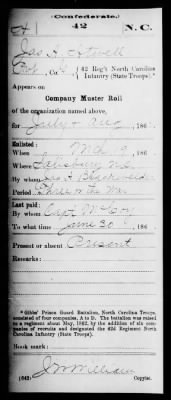 (Confederate.)
42 N.C.
42 Reg't North Carolina
Infantry (State Troops).*
Appears on
Company Muster Roll
of the organization named above,
for July & Aug, 186
Enlisted:
When Mch 19, 186
Where Salisbury N.C.
By whom
Period Three or the War
Last paid:
By whom Capt McCoy
To what time June 30, 186
Present or absent Present
Remarks:
*Gibbs' Prison Guard Battalion, North Carolina Troops,
consisted of four companies, A to D. The battalion was raised
to a regiment about May, 1862, by the addition of six companies
of recruits and designated the 42d Regiment North
Carolina Infantry (State Troops).
Book mark:
(642)
Copyist.